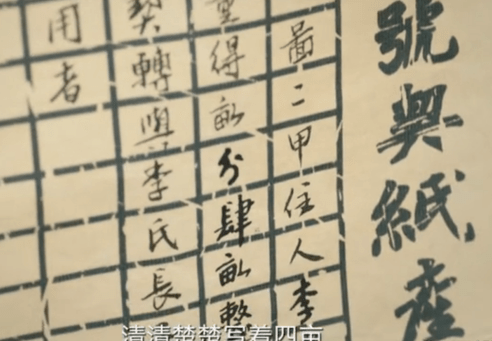 號契紙產
啚二甲住人李
得畝分肆畝整
契轉與李氏長
用者
清清楚楚写着四亩